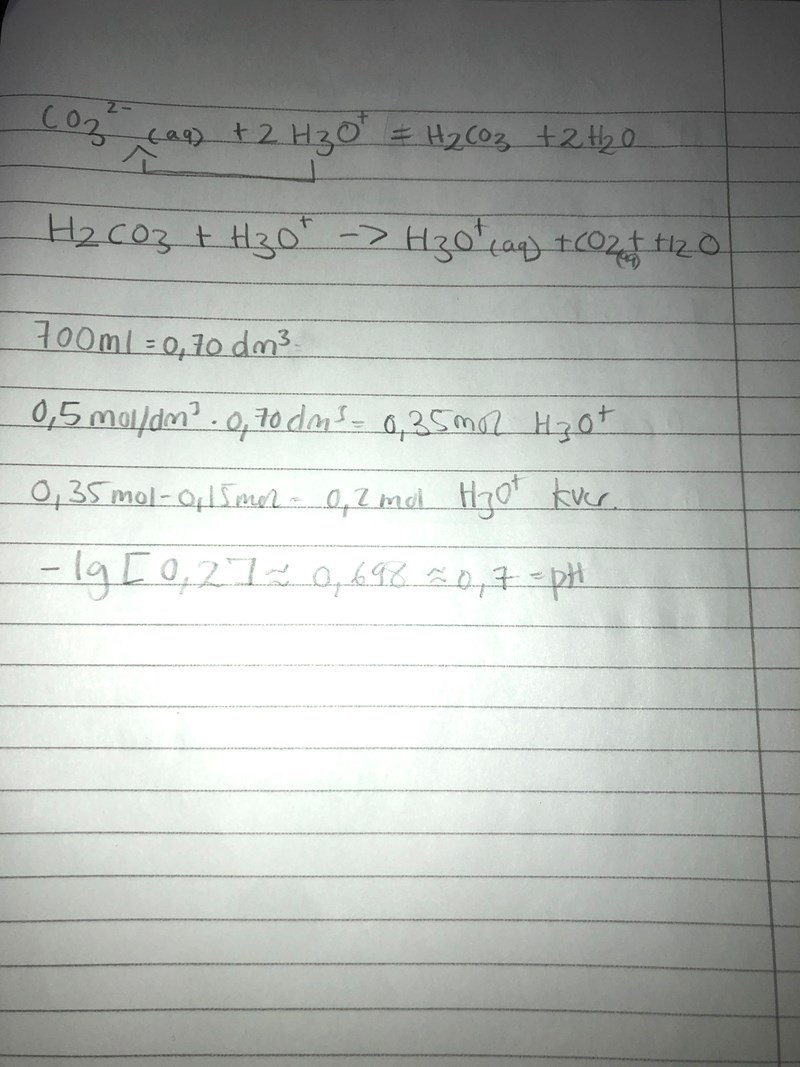 CO₃²⁻ (aq) + 2 H₃O⁺ = H₂CO₃ + 2H₂O
H₂CO₃ + H₃O⁺ -> H₃O⁺(aq) + CO₂(g) + H₂O
700ml = 0,70 dm³
0,5 mol/dm³ · 0,70 dm³ = 0,35 mol H₃O⁺
0,35 mol - 0,15 mol = 0,2 mol H₃O⁺ kvar.
-lg [0,2] ≈ 0,698 ≈ 0,7 = pH